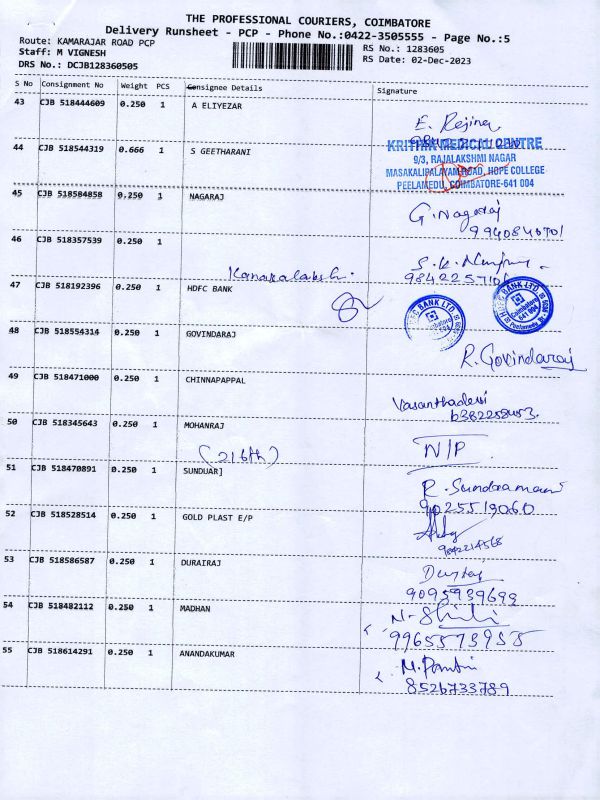 THE PROFESSIONAL COURIERS, COIMBATORE
Delivery Runsheet - PCP - Phone No.:0422-3505555 - Page No.:5
Route: KAMARAJAR ROAD PCP
Staff: M VIGNESH
DRS No.: DCJB128360505
RS No.: 1283605
RS Date: 02-Dec-2023
S No Consignment No Weight PCS Consignee Details Signature
43 CJB 518444609 0.250 1 A ELIYEZAR
E. Rejina
44 CJB 518544319 0.666 1 S GEETHARANI
KRITHIK MEDICAL CENTRE
9/3, RAJALAKSHMI NAGAR
MASAKALIPALAYAM ROAD, HOPE COLLEGE
PEELAMEDU, COIMBATORE-641 004
45 CJB 518584858 0.250 1 NAGARAJ
G. Nagaraj
9940840701
46 CJB 518357539 0.250 1
S.K.
Kanakalakshmi
47 CJB 518192396 0.250 1 HDFC BANK
HDFC BANK LTD.
HDFC BANK LTD.
Coimbatore
641 004
Peelamedu
48 CJB 518554314 0.250 1 GOVINDARAJ
R. Govindaraj
49 CJB 518471000 0.250 1 CHINNAPAPPAL
Vasanthadevi
50 CJB 518345643 0.250 1 MOHANRAJ
N/P
51 CJB 518470891 0.250 1 SUNDUAR]
R. Sundaramani
9025519060
52 CJB 518528514 0.250 1 GOLD PLAST E/P
9842214568
53 CJB 518586587 0.250 1 DURAIRAJ
9095939699
54 CJB 518482112 0.250 1 MADHAN
9965573955
55 CJB 518614291 0.250 1 ANANDAKUMAR
8526733789